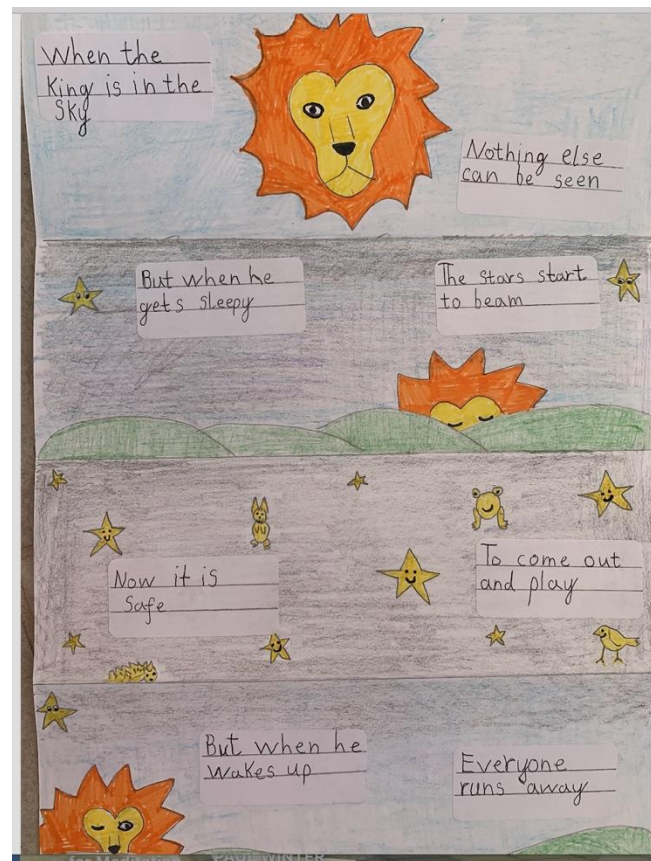 When the
King is in the
Sky
Nothing else
can be seen
But when he
gets sleepy
The stars start
to beam
Now it is
Safe
To come out
and play
But when he
wakes up
Everyone
runs away
PAUL WINTER